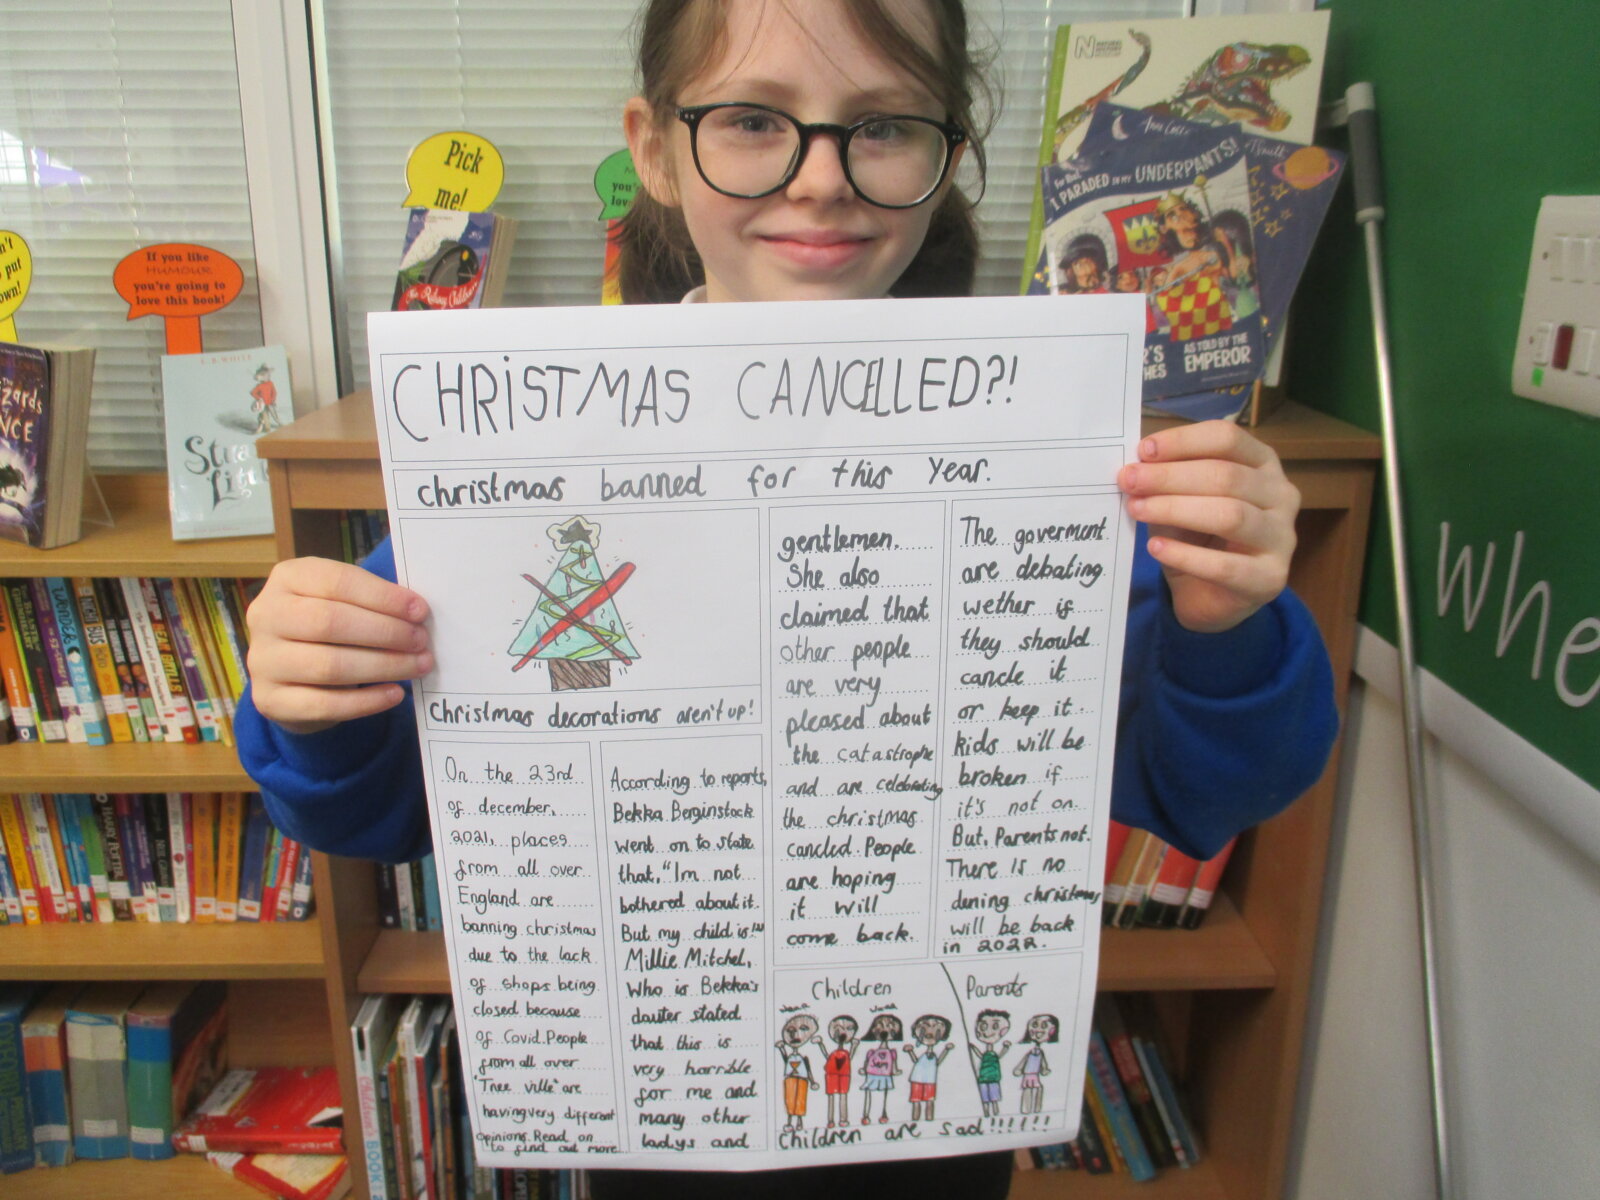 CHRISTMAS CANCELLED?!
christmas banned for this Year.
Christmas decorations aren't up!
On the 23rd
of december,
2021, places
from all over
England are
banning christmas
due to the lack
of shops being
closed because
of Covid. People
from all over
"Tree ville" are
having very different
opinions. Read on
to find out more
According to reports,
Bekka Berginstock
went on to state
that, "Im not
bothered about it.
But my child is!"
Millie Mitchel,
Who is Bekka's
dauter stated
that this is
very horrible
for me and
many other
ladys and
gentlemen.
She also
claimed that
other people
are very
pleased about
the catastrophe
and are celebrating
the christmas
cancled. People
are hoping
it will
come back.
The goverment
are debating
wether if
they should
cancle it
or keep it.
kids will be
broken if
it's not on.
But, Parents not.
There is no
dening christmas
will be back
in 2022.
Children
Parents
Children are sad!!!!!!!
Pick
me!
If you like
HUMOUR
you're going to
love this book!
The Railway Children
E. B. WHITE
NATURAL
HISTORY
I PARADED IN MY UNDERPANTS!
AS TOLD BY THE
EMPEROR
Whe